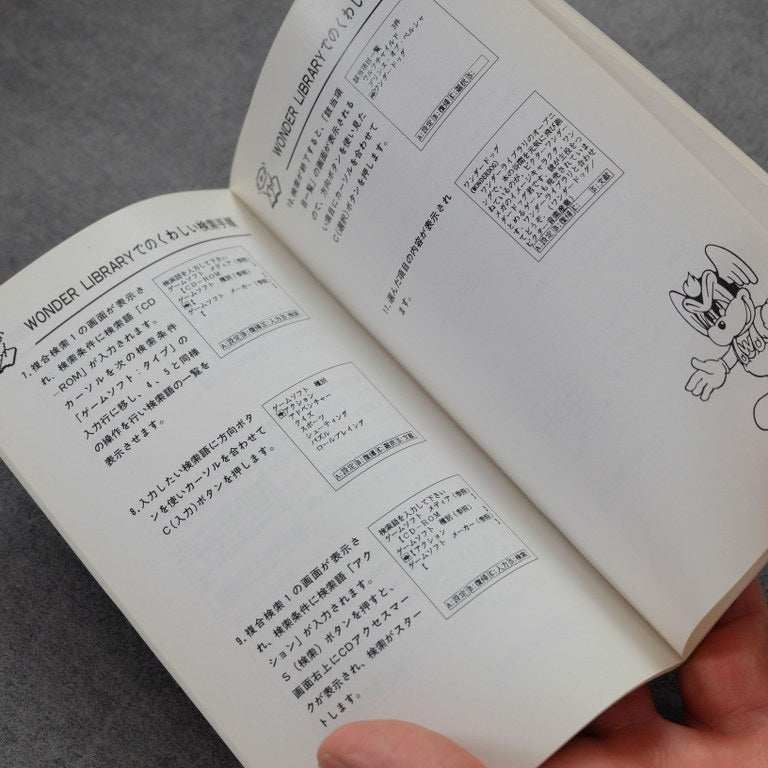 WONDER LIBRARYでのくわしい検索手順
7.複合検索1の画面が表示さ
れ、検索条件に検索語「CD
_ROM」が入力されます。
カーソルを次の検索条件
「ゲームソフト:タイプ」の
入力行に移し、4、5と同様
の操作を行い検索語の一覧を
表示させます。
検索語を入力して下さい
ゲームソフト メディア(参照)
【CD-ROM
ゲームソフト 種別(参照)
【
ゲームソフト メーカー(参照)
【
A:設定B:復帰C:入力S:検索
8.入力したい検索語に方向ボタ
ンを使いカーソルを合わせて
C(入力)ボタンを押します。
ゲームソフト 種別
アクション
アドベンチャー
クイズ
スポーツ
シューティング
パズル
ロールプレイング
A:設定B:復帰C:選択S:文献
9.複合検索1の画面が表示さ
れ、検索条件に検索語「アク
ション」が入力されます。
S(検索)ボタンを押すと、
画面右上にCDアクセスマー
クが表示され、検索がスター
トします。
検索語を入力して下さい
ゲームソフト メディア(参照)
【CD-ROM 】
ゲームソフト 種別(参照)
【アクション 】
ゲームソフト メーカー(参照)
【 】
A:設定B:復帰C:入力S:検索
WONDER LIBRARYでのくわしい
10.検索が終了すると、「該当項
目一覧」の画面が表示される
ので、方向ボタンを使い見た
い項目にカーソルを合わせて
C(選択)ボタンを押します。
該当項目一覧 3件
ウルフチャイルド
プリンス・オブ・ペルシャ
ワンダードッグ
A:設定B:復帰C:選択S:
11.選んだ項目の内容が表示され
ます。
ワンダードッグ
A:設定B:復帰C: S:文献